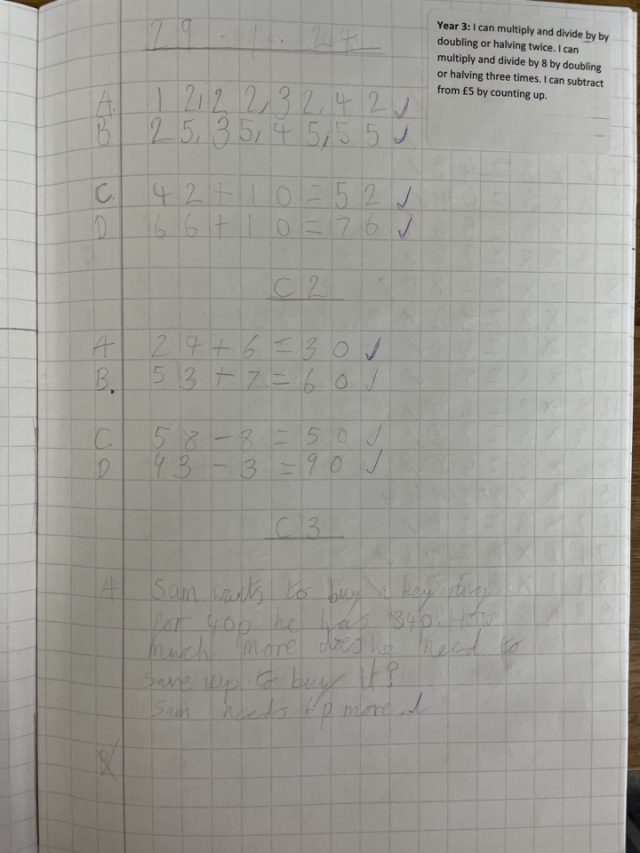 29.1.24
Year 3: I can multiply and divide by by
doubling or halving twice. I can
multiply and divide by 8 by doubling
or halving three times. I can subtract
from £5 by counting up.
A. 12, 22, 32, 42 ✓
B 25, 35, 45, 55 ✓
C. 42 + 10 = 52 ✓
D 66 + 10 = 76 ✓
C2
A 24 + 6 = 30 ✓
B. 53 + 7 = 60 ✓
C 58 - 8 = 50 ✓
D 93 - 3 = 90 ✓
C3
A Sam wants to buy a key ring
for 40p he has 34p. How
much more does he need to
save up to buy it?
Sam needs 6p more. ✓
B